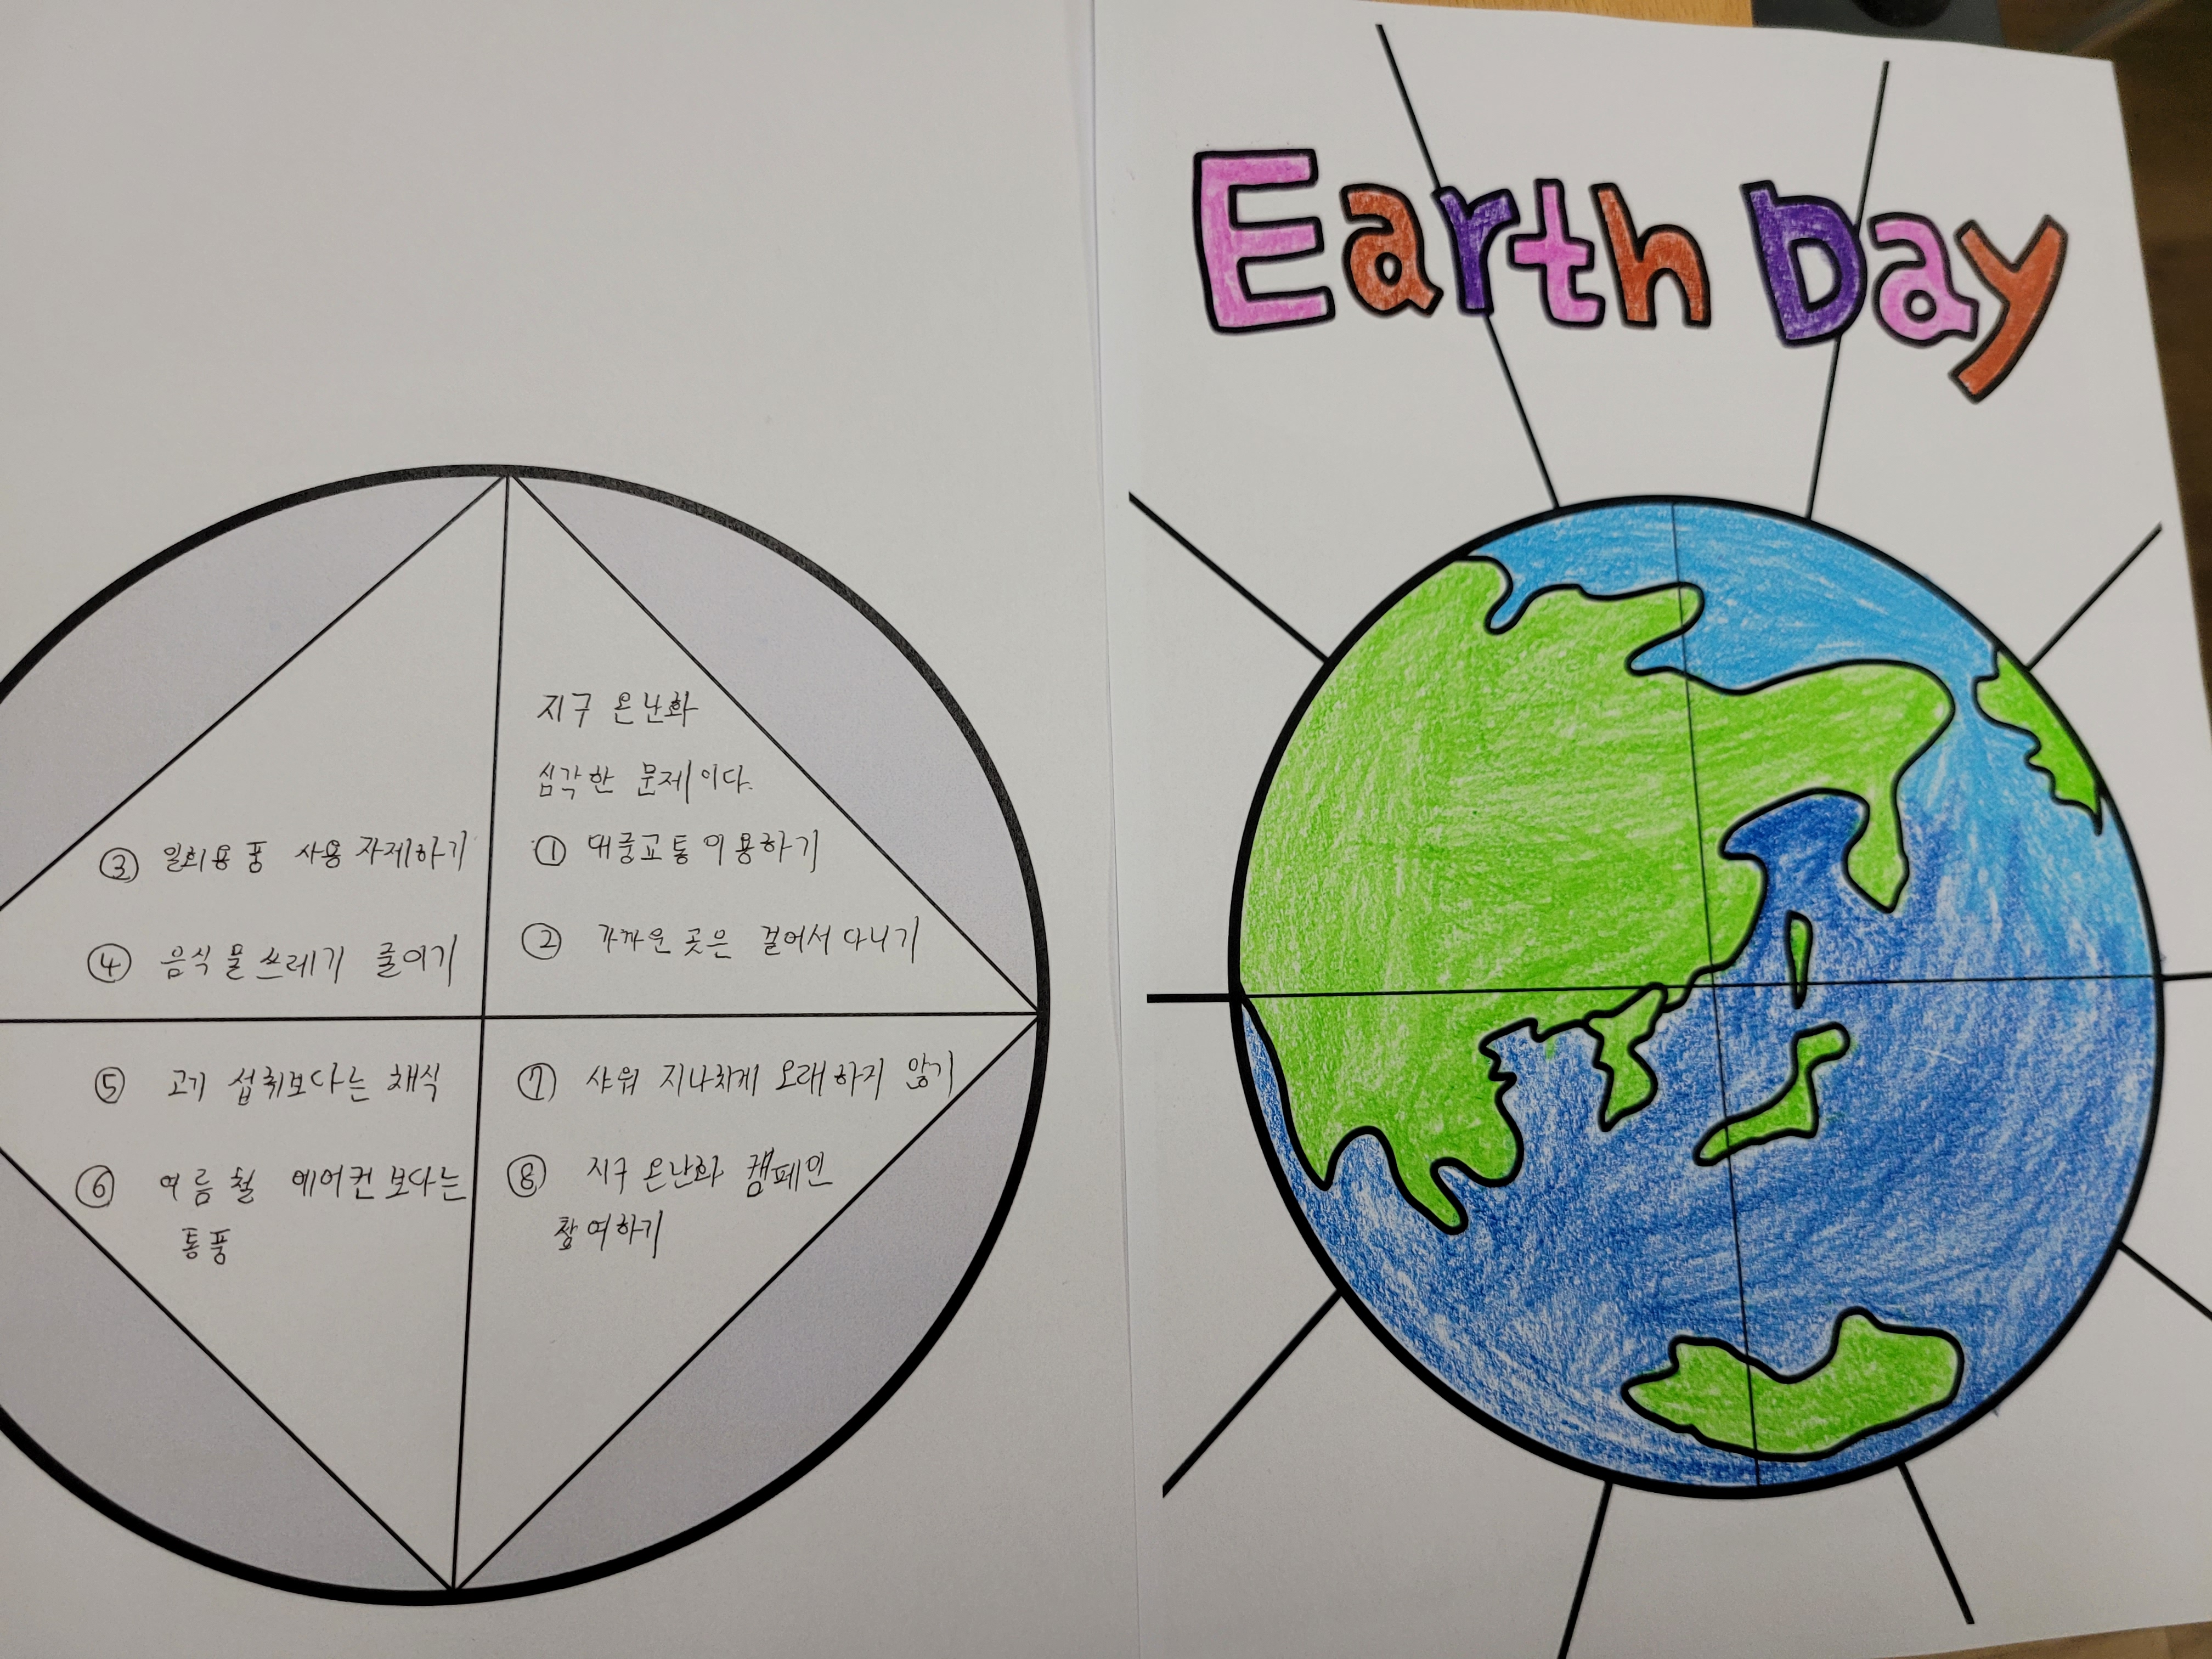 지구 온난화
심각한 문제이다.
① 대중교통 이용하기
② 가까운 곳은 걸어서 다니기
③ 일회용품 사용 자제하기
④ 음식물 쓰레기 줄이기
⑤ 고기 섭취보다는 채식
⑥ 여름철 에어컨 보다는
통풍
⑦ 샤워 지나치게 오래하지 않기
⑧ 지구 온난화 캠페인
참여하기
Earth Day